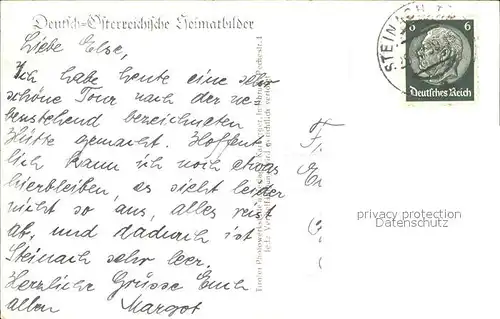 Deutsch-Österreichische Heimatbilder
Liebe Else,
Ich habe heute eine sehr
schöne Tour nach der ne
benstehend bezeichneten
Hütte gemacht. Hoffent
lich kann ich noch etwas
hierbleiben, es sieht leider
nicht so aus, alles reist
ab, und dadurch ist
Steinach sehr leer.
Herzliche Grüsse Euch
allen Margot
STEINACH
6 6
Deutsches Reich
privacy protection
watermark